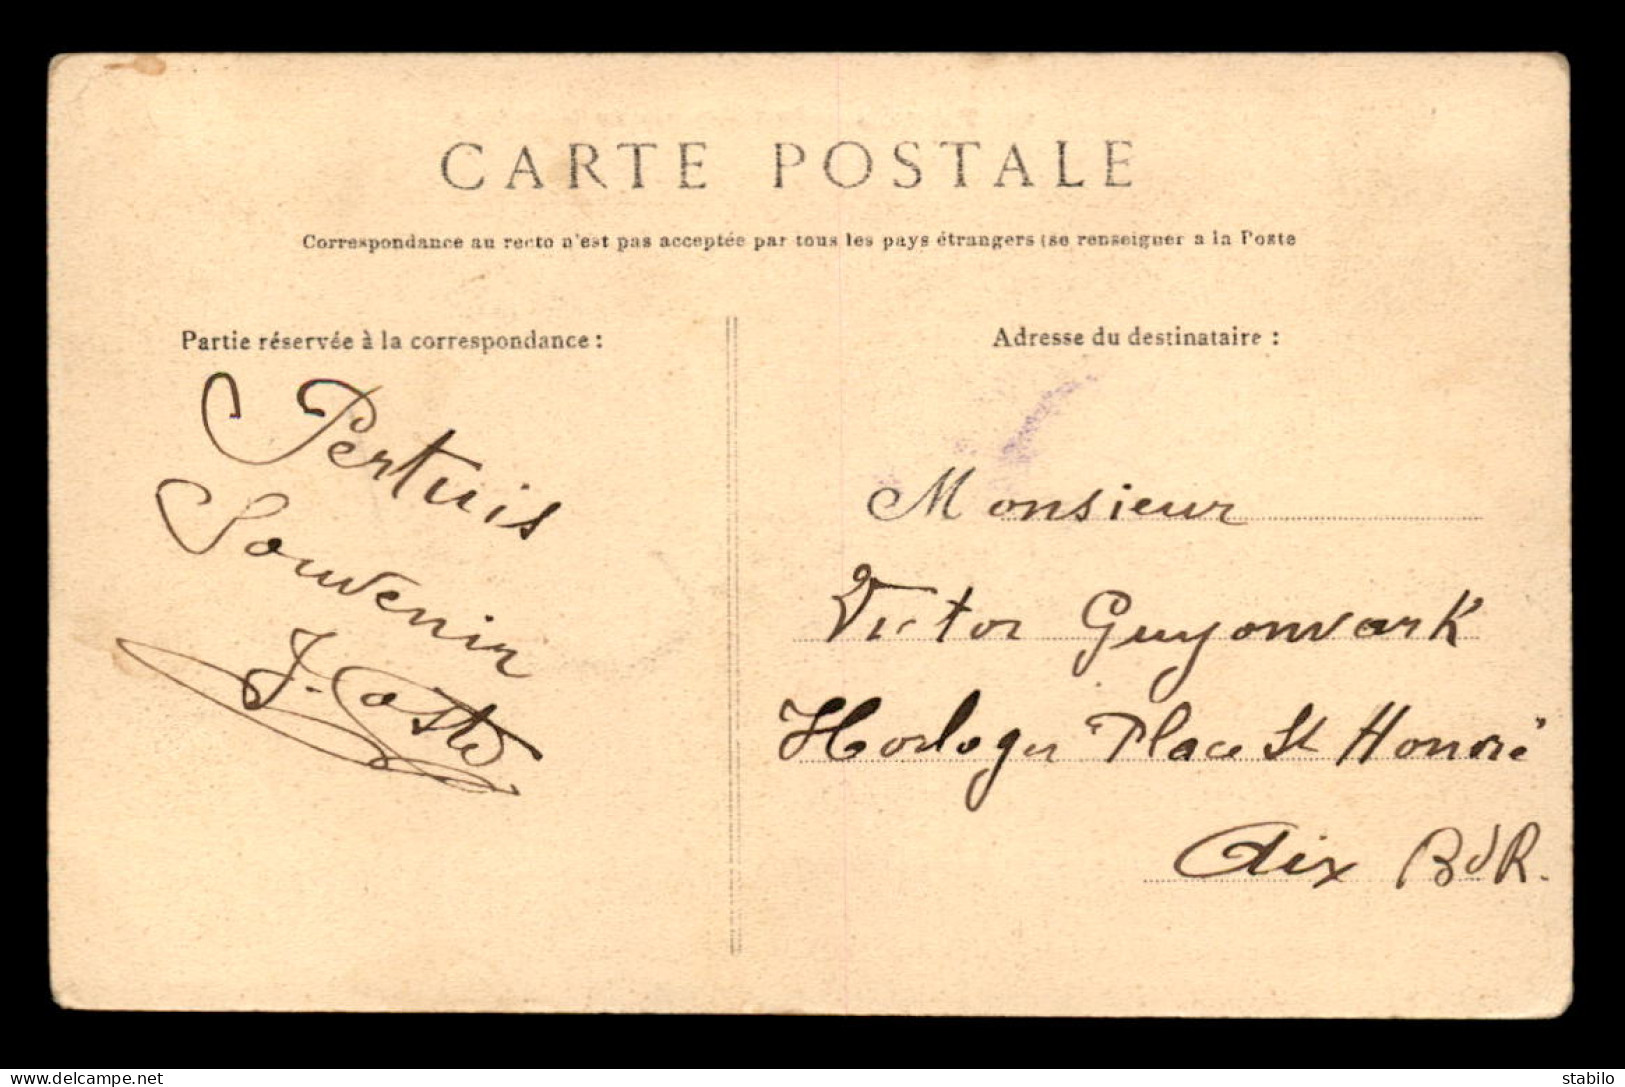 CARTE POSTALE
Correspondance au recto n'est pas acceptée par tous les pays étrangers (se renseigner a la Poste
Partie réservée à la correspondance :
Pertuis
Souvenir
J. Coste
Adresse du destinataire :
Monsieur
Victor Guyonvark
Horloger Place St Honoré
Aix BdR.
www.delcampe.net
stabilo